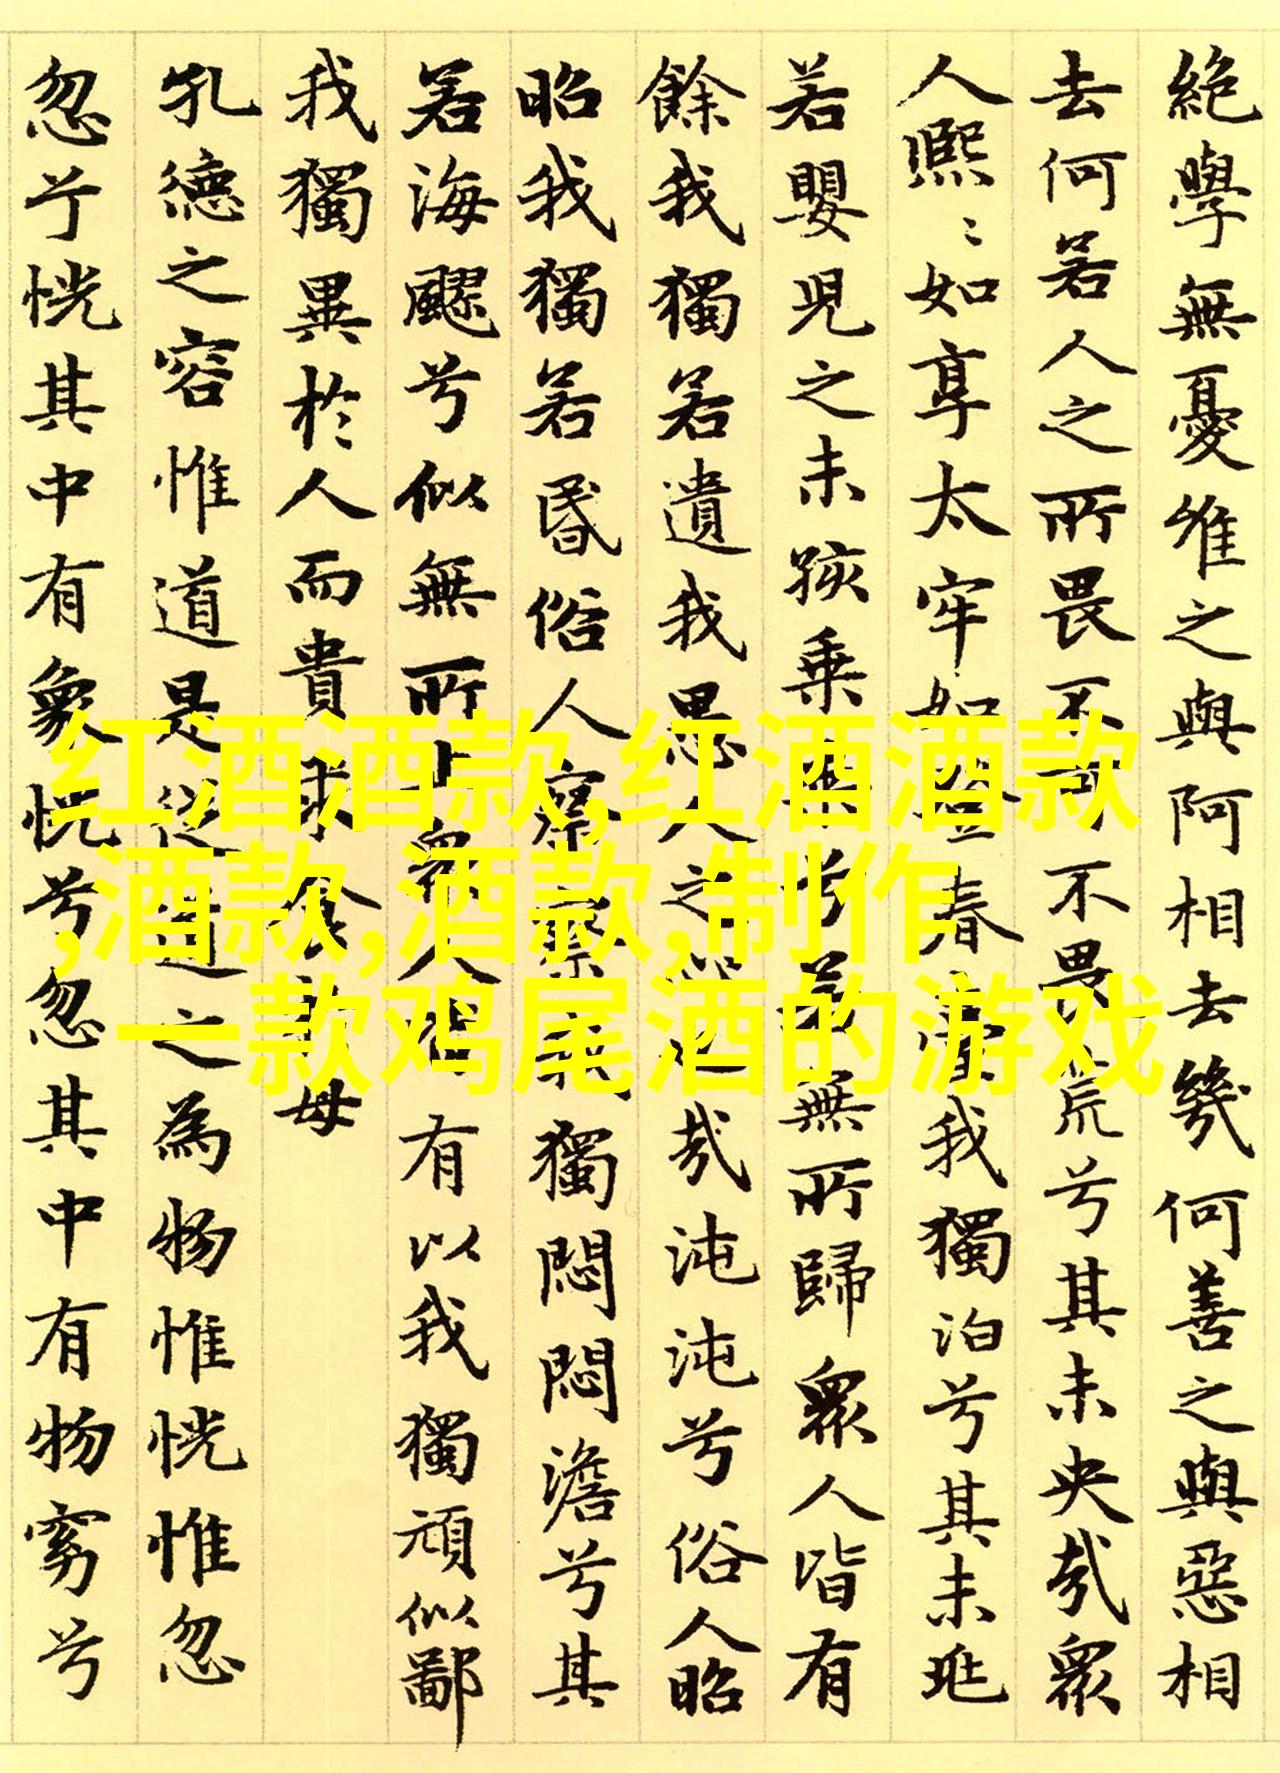 絕學無憂維之與阿相去幾何善之與惡相
去何若人之所畏不可不畏荒兮其未央哉眾
人熙〻如享太牢如登春臺我獨泊兮其未兆
若嬰兒之未孩乘乘兮若無所歸眾人皆有
餘我獨若遺我愚人之心也哉沌沌兮俗人昭
昭我獨若昏俗人察察我獨悶悶澹兮其
若海飂兮似無所止眾人皆有以我獨頑似鄙
我獨異於人而貴求食於母
孔德之容惟道是從道之為物惟恍惟忽
忽兮恍其中有象恍兮忽其中有物窈兮
红酒酒款,红酒酒款
,酒款,酒款,制作
一款鸡尾酒的游戏